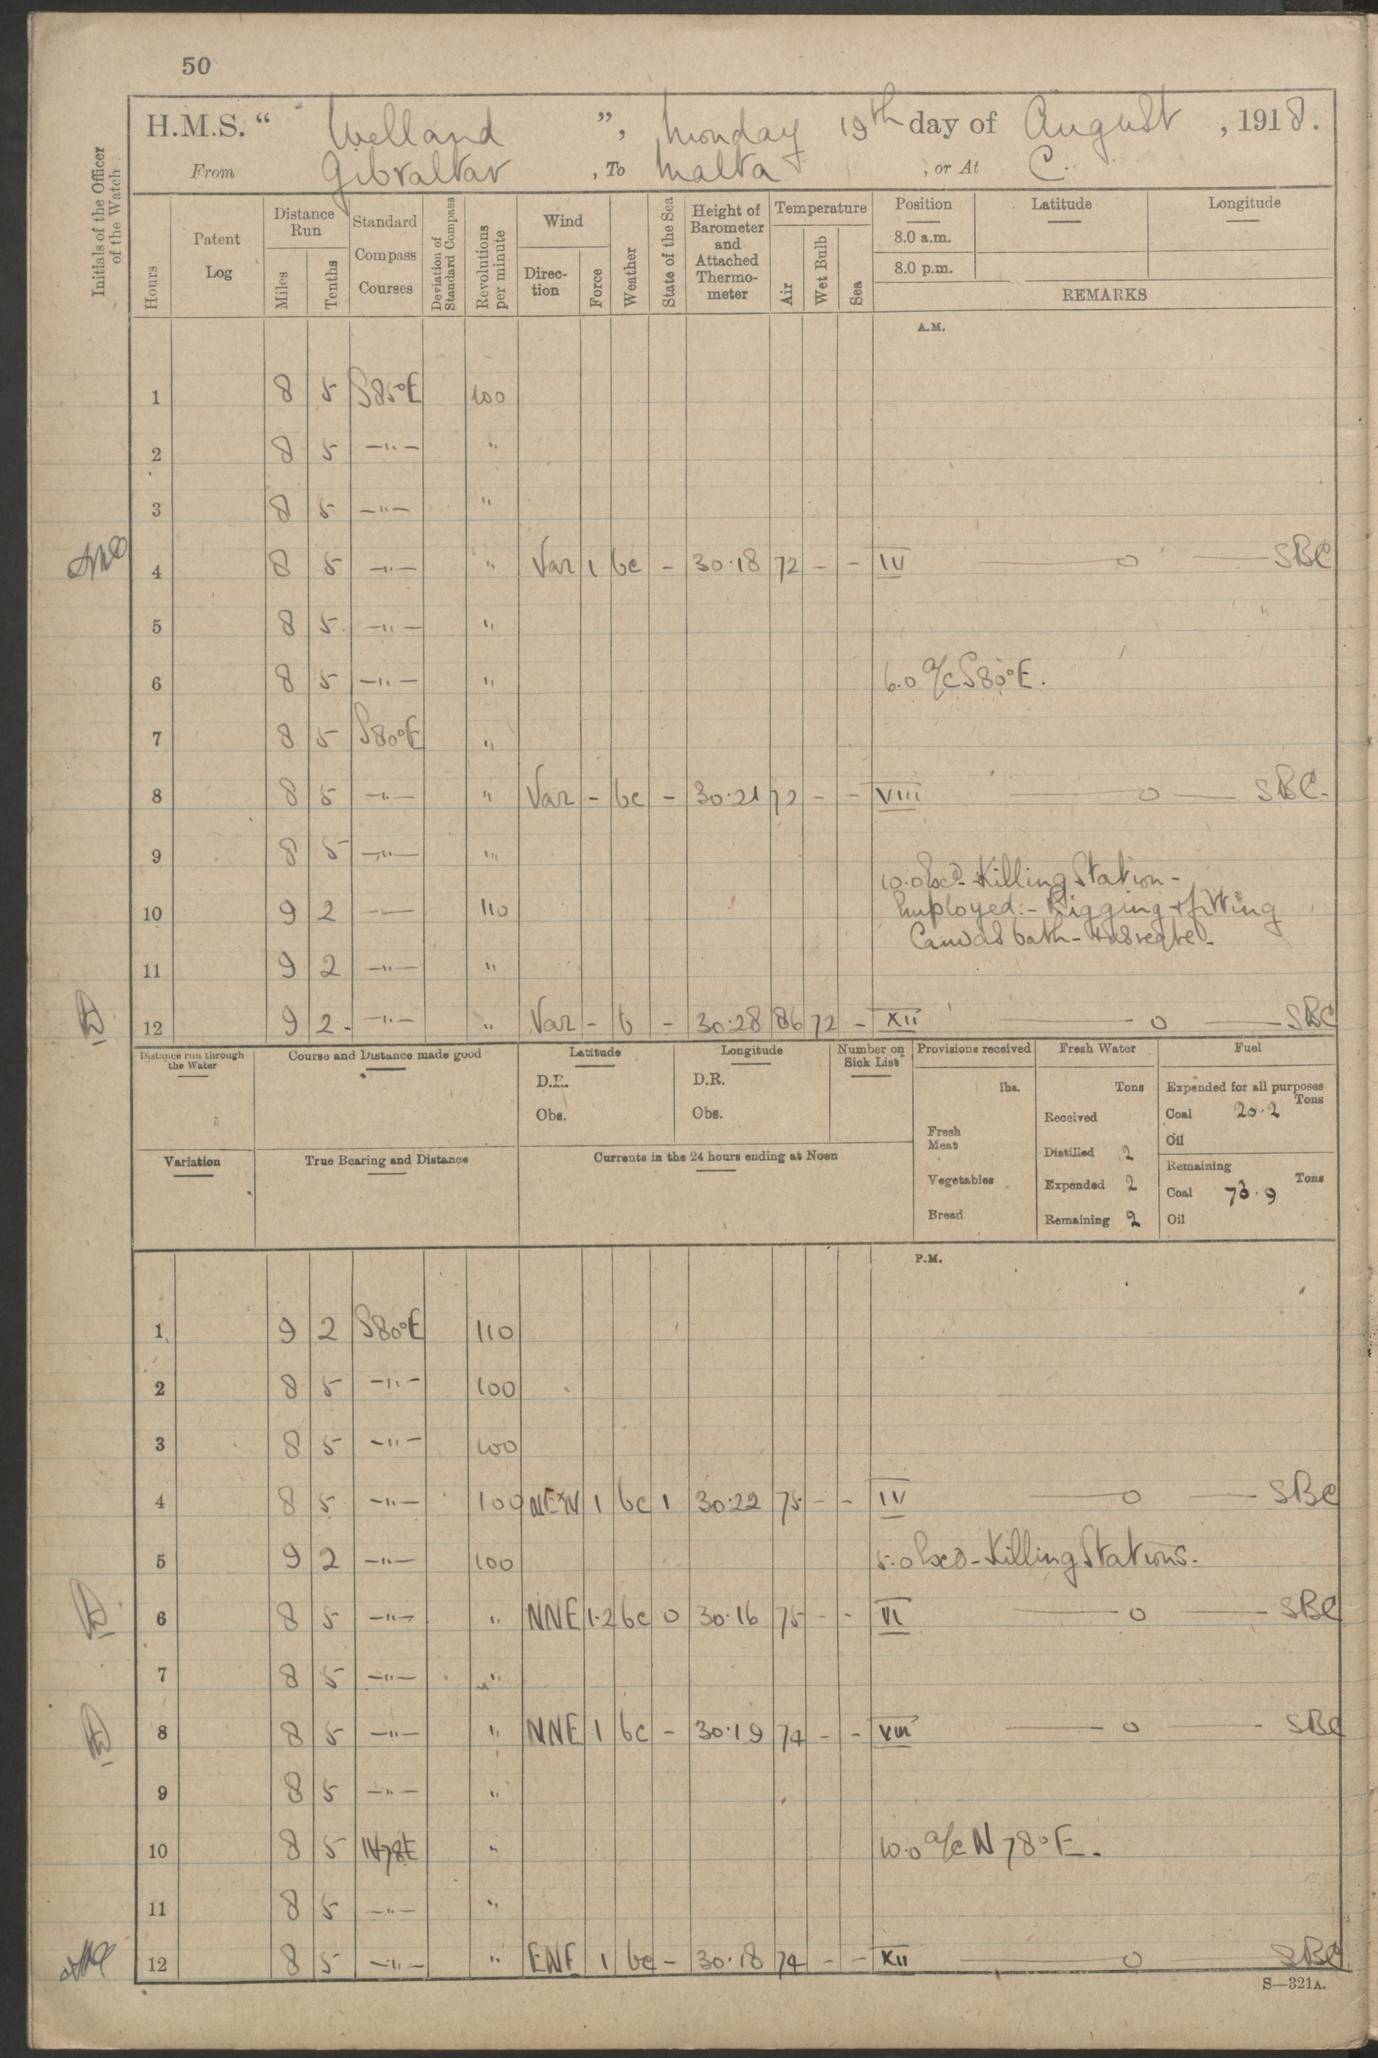 50
H.M.S. “ Welland ”, Monday 19th day of August , 1918.
From Gibraltar , To Malta , or At
Initials of the Officer of the Watch
Hours
Patent Log
Distance Run
Miles
Tenths
Standard Compass Courses
Deviation of Standard Compass
Revolutions per minute
Wind
Direc-tion
Force
Weather
State of the Sea
Height of Barometer and Attached Thermo-meter
Temperature
Air
Wet Bulb
Sea
Position
8.0 a.m.
8.0 p.m.
Latitude
Longitude
REMARKS
A.M.
1 8 5 S85°E 100
2 8 5 —"— "
3 8 5 —"— "
4 8 5 —"— " Var 1 bc - 30.18 72 - - IV —o— SBC
5 8 5 —"— "
6 8 5 —"— " 6.0 a/c S80°E.
7 8 5 S80°E "
8 8 5 —"— " Var - bc - 30.21 72 - - VIII —o— SBC.
9 8 5 —"— "
10.0 Exd- Killing Station-
10 9 2 —"— 110 Employed:- Rigging & fitting
Canvas bath - & as reqred-
11 9 2 —"— "
12 9 2 —"— " Var - b - 30.28 86 72 - XII —o— SBC
Distance run through the Water
Course and Distance made good
Latitude
D.R.
Obs.
Longitude
D.R.
Obs.
Number on Sick List
Provisions received
lbs.
Fresh Meat
Vegetables
Bread
Fresh Water
Tons
Received
Distilled 2
Expended 2
Remaining 2
Fuel
Expended for all purposes
Tons
Coal 20.2
Oil
Remaining
Tons
Coal 73.9
Oil
Variation
True Bearing and Distance
Currents in the 24 hours ending at Noon
P.M.
1 9 2 S80°E 110
2 8 5 —"— 100
3 8 5 —"— 100
4 8 5 —"— 100 NExN 1 bc 1 30.22 75 - - IV —o— SBC
5 9 2 —"— 100 5.0 Exd - Killing Stations.
6 8 5 —"— " NNE 1.2 bc 0 30.16 75 - - VI —o— SBC
7 8 5 —"— "
8 8 5 —"— " NNE 1 bc - 30.19 74 - - VIII —o— SBC
9 8 5 —"— "
10 8 5 N78E " 10.0 a/c N78°E.
11 8 5 —"— "
12 8 5 —"— " ENE 1 bc - 30.18 74 - - XII —o— SBC
S—321A.